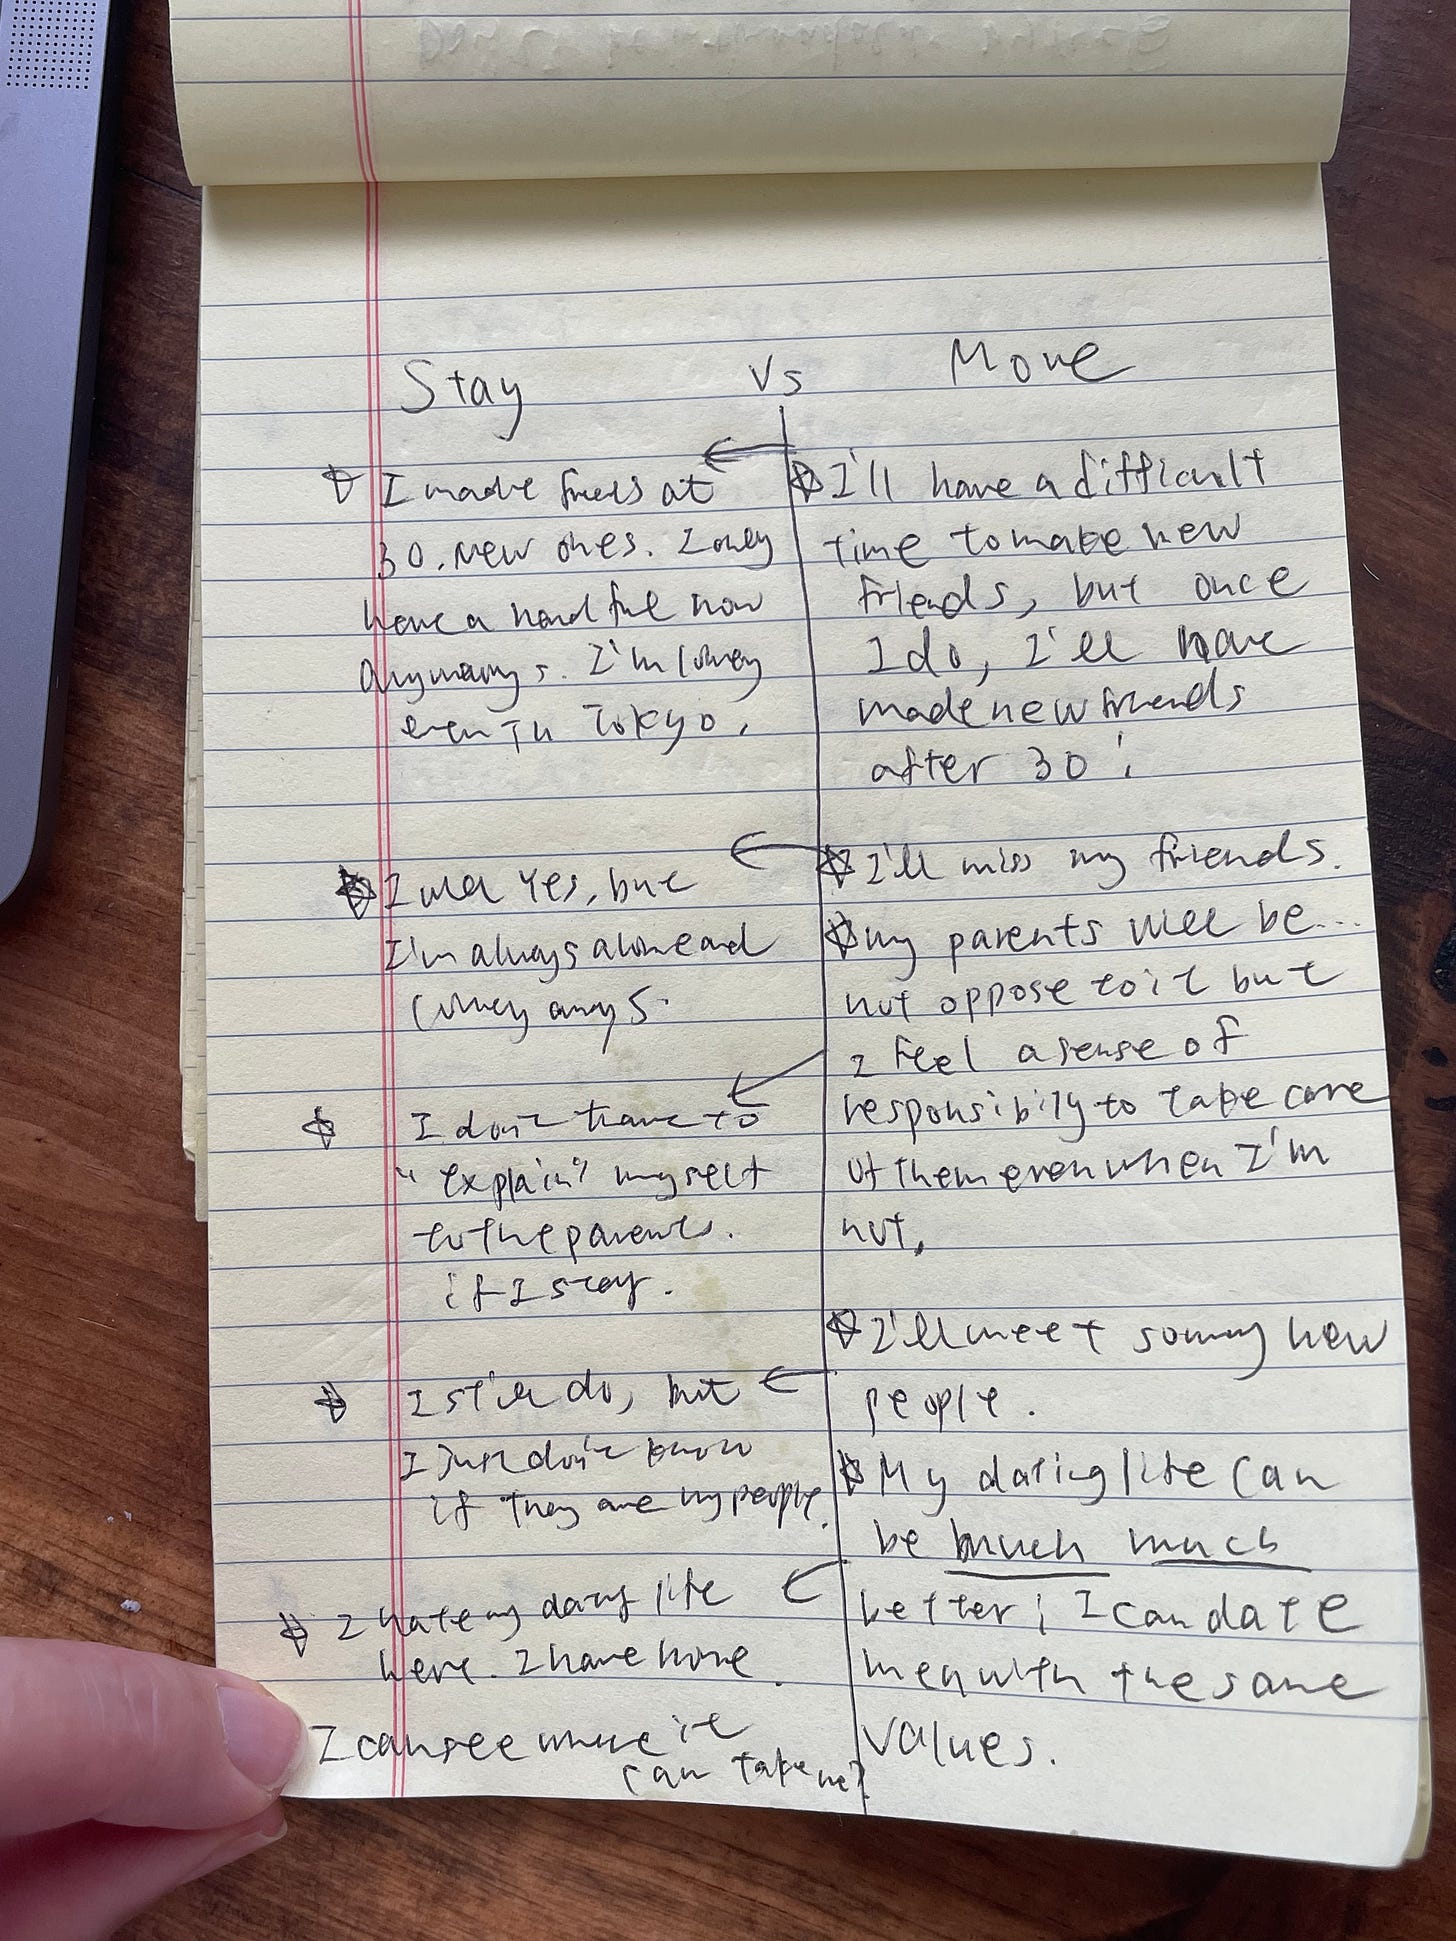 Stay vs Move
I made friends at
30. New ones. I only
have a handful now
anyways. I'm lonely
even in Tokyo.
I will Yes, but
I'm always alone and
lonely anyways.
I don't have to
"explain" myself
to the parents.
if I stay.
I still do, but
I just don't know
if they are my people.
I hate my dating life
here. I have none.
I can see where it
can take me?
I'll have a difficult
time to make new
friends, but once
I do, I'll have
made new friends
after 30!
I'll miss my friends.
my parents will be...
not oppose to it but
I feel a sense of
responsibility to take care
of them even when I'm
not.
I'll meet so many new
people.
My dating life can
be much much
better; I can date
men with the same
values.